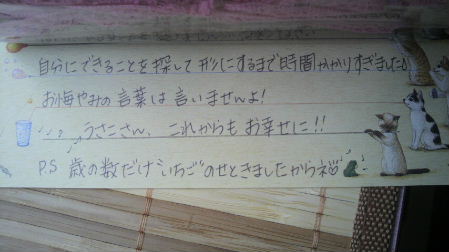 自分にできることを探して形にするまで時間かかりすぎました
お悔やみの言葉は言いませんよ!
うさこさん、これからもお幸せに!!
P.S 歳の数だけ"いちご"のせときましたからネ